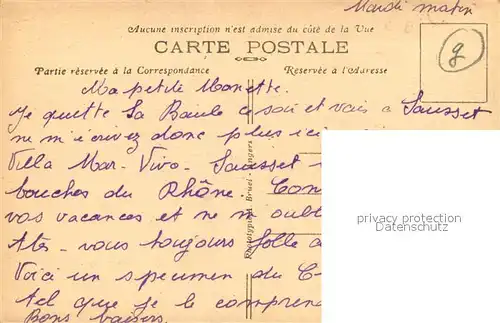 Mardi matin
Aucune inscription n'est admise du côté de la Vue
CARTE POSTALE
Partie réservée à la Correspondance
Réservée à l'Adresse
g
Ma petite Monette.
Je quitte La Baule ce soir et vais à Sausset
ne m'écrivez donc plus ici
Villa Mar-Vivo. Sausset
bouches du Rhône.
vos vacances et ne m'oubl
tes-vous toujours folle a
Voici un specumen du C
tel que je le comprend
Bons baisers
Phototypie Bruel - Angers
privacy protection
Datenschutz